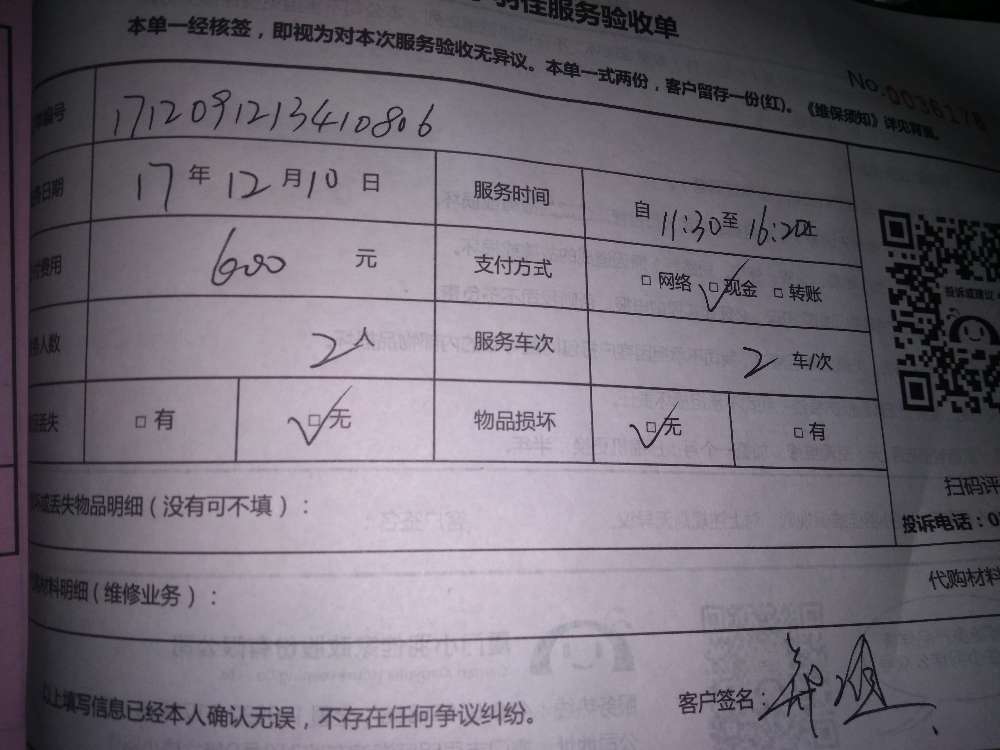 服务验收单
本单一经核签，即视为对本次服务验收无异议。本单一式两份，客户留存一份(红)。《维保须知》详见背面。
No.0036178
编号 1712091213410806
日期 17年12月10日 服务时间 自11:30至16:20止
费用 600元 支付方式 □网络 □现金 □转账
人数 2 服务车次 2 车/次
丢失 □有 □无 物品损坏 □无 □有
投诉或建议
扫码评
投诉电话：0
丢失物品明细（没有可不填）：
材料明细（维修业务）：
代购材料
以上填写信息已经本人确认无误，不存在任何争议纠纷。
客户签名：